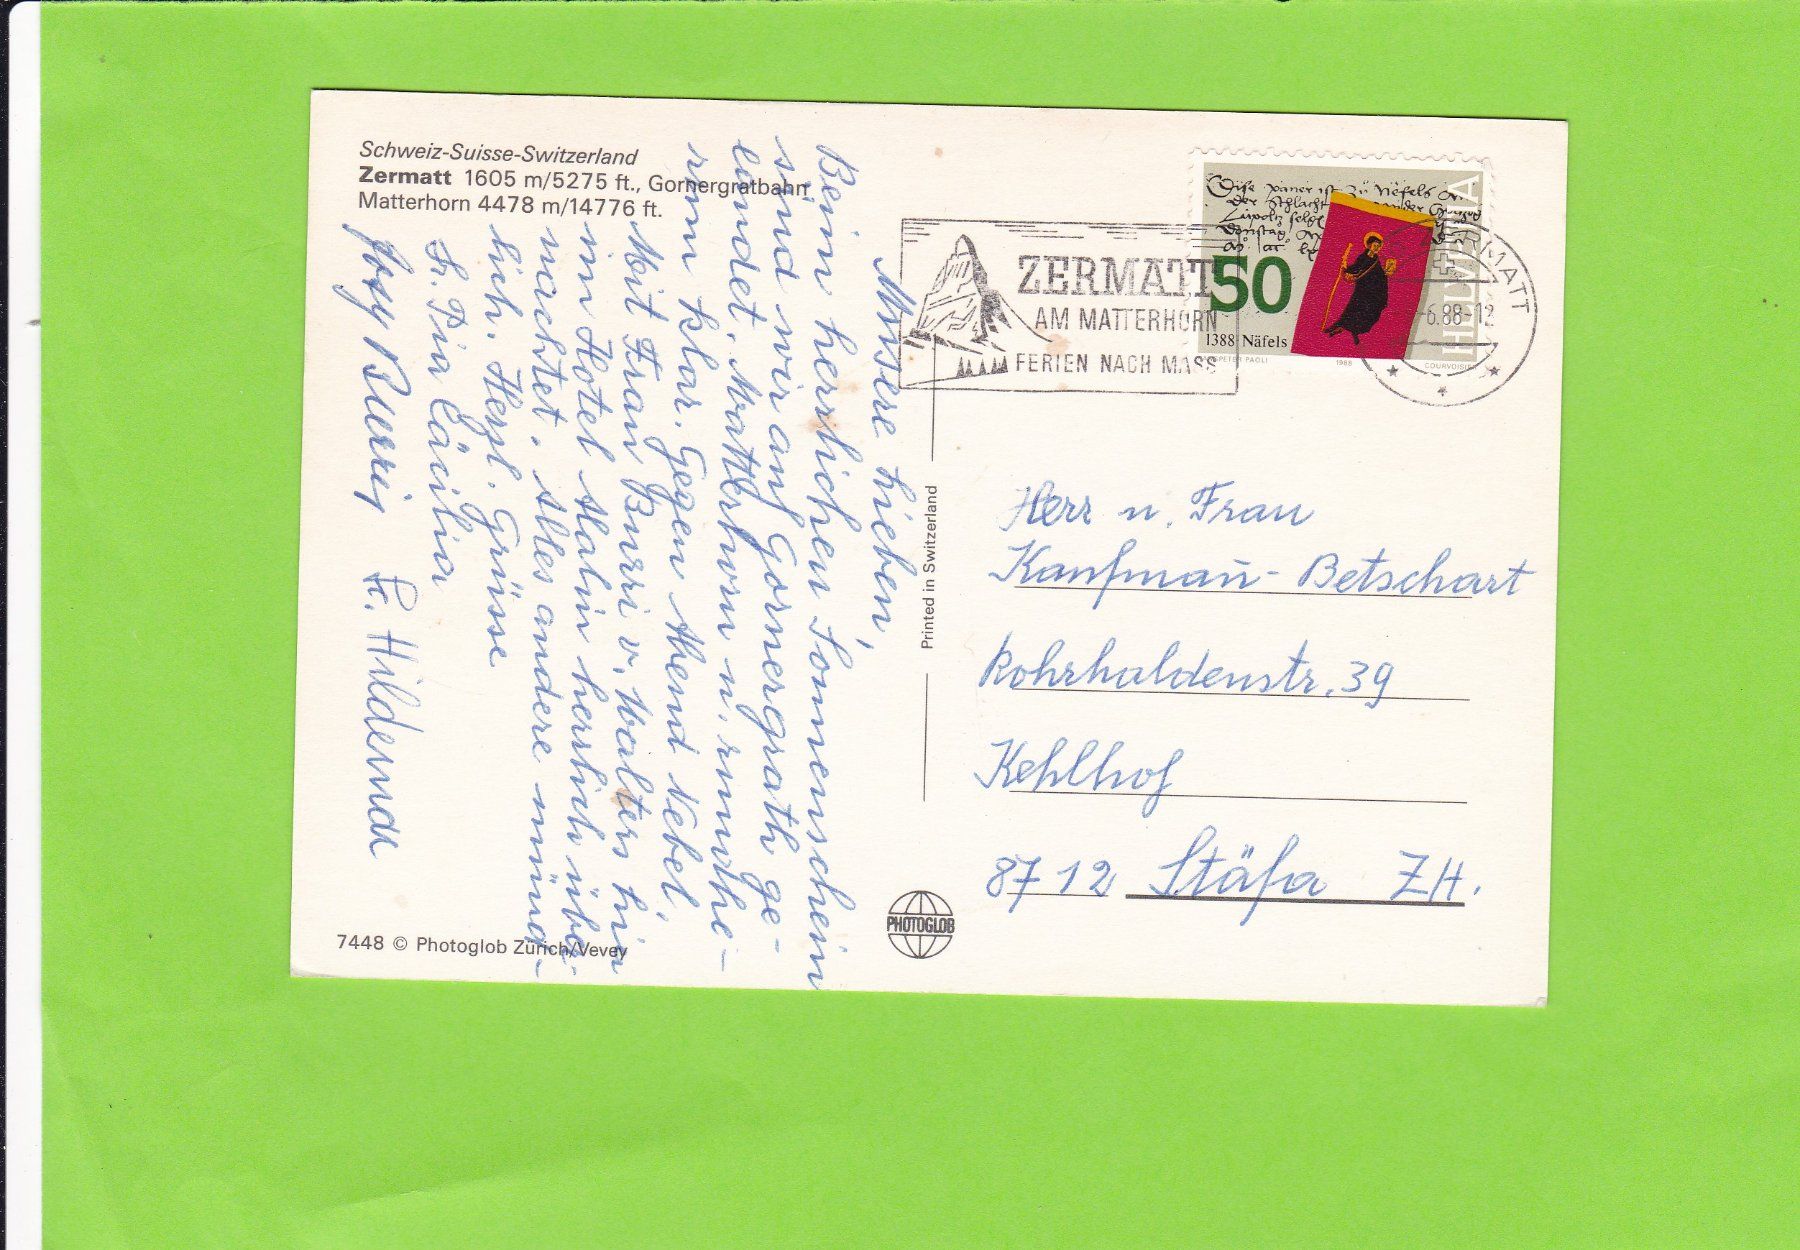 Schweiz-Suisse-Switzerland
Zermatt 1605 m/5275 ft., Gornergratbahn
Matterhorn 4478 m/14776 ft.
Meine Lieben,
Beim herrlichen Sonnenschein
sind wir auf Gornergrath ge-
landet. Matterhorn u. rundhe-
rum klar. Gegen Abend Nebel.
Mit Frau Burri v. Malters hir
im Hotel Alalin herrlich über-
nachtet. Alles andere münd-
lich. Herzl. Grüsse
Sr. Pia Cäcilia
Josy Burri
7448 © Photoglob Zürich/Vevey
Printed in Switzerland
PHOTOGLOB
ZERMATT
AM MATTERHORN
FERIEN NACH MASS
ZERMATT
6.88-12
HELVETIA
50
1388 Näfels
PAOLI
1988
COURVOISIER
Herr u. Frau
Kaufmann-Betschart
Rohrhaldenstr. 39
Kehlhof
8712 Stäfa ZH.